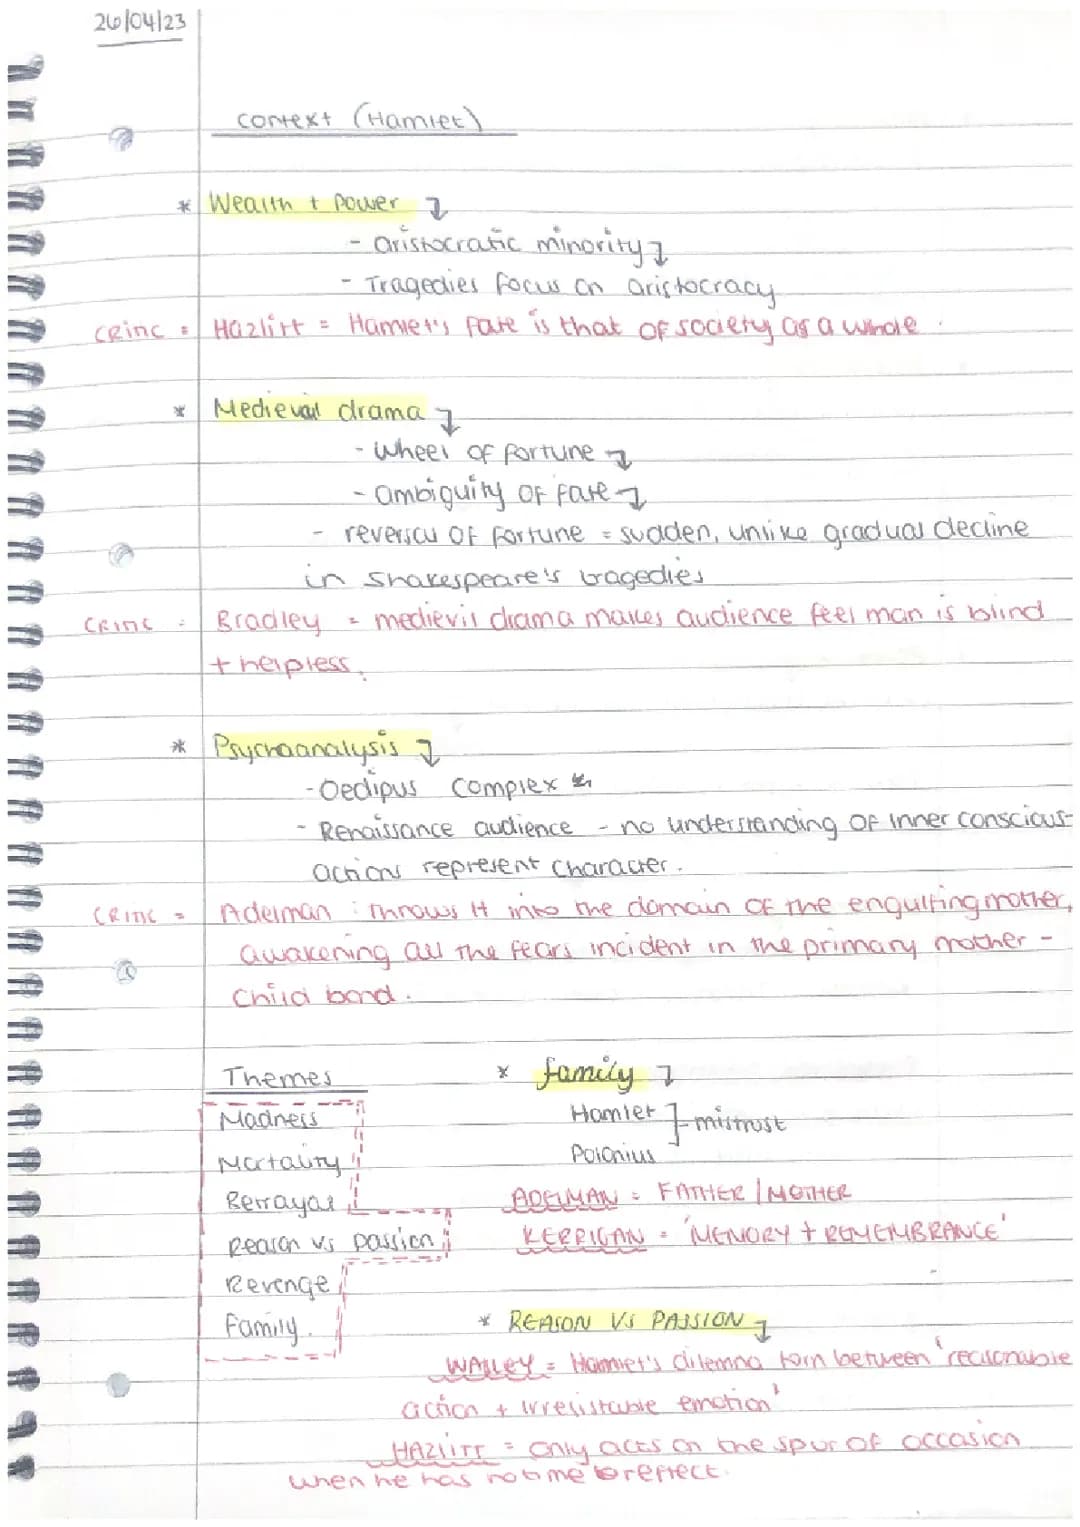 26/04/23
context (Hamlet)
* Wealth + Power ↴
- aristocratic minority ↴
- Tragedies focus on aristocracy
CRITIC = Hazlitt = Hamlet's fate is that of society as a whole.
* Medieval drama ↴
- Wheel of fortune ↴
- ambiguity of fate ↴
- reversal of fortune = sudden, unlike gradual decline
in Shakespeare's tragedies
CRITIC = Bradley = medievil drama makes audience feel man is blind
+ helpless.
* Psychoanalysis ↴
- Oedipus Complex
- Renaissance audience - no understanding of inner conscious-
actions represent character.
CRITIC = Adelman : Throws it into the domain of the engulfing mother,
awakening all the fears incident in the primary mother -
child bond.
Themes
Madness
Mortality
Betrayal
Reason vs passion
Revenge
Family.
* family ↴
Hamlet ] mistrust
Polonius
ADELMAN = FATHER / MOTHER
KERRIGAN = 'MEMORY + REMEMBRANCE'
* REASON VS PASSION ↴
WALLEY = Hamlet's dilemna torn between 'reasonable
action + irresistable emotion'
HAZLITT = only acts on the spur of occasion
when he has no time to reflect.